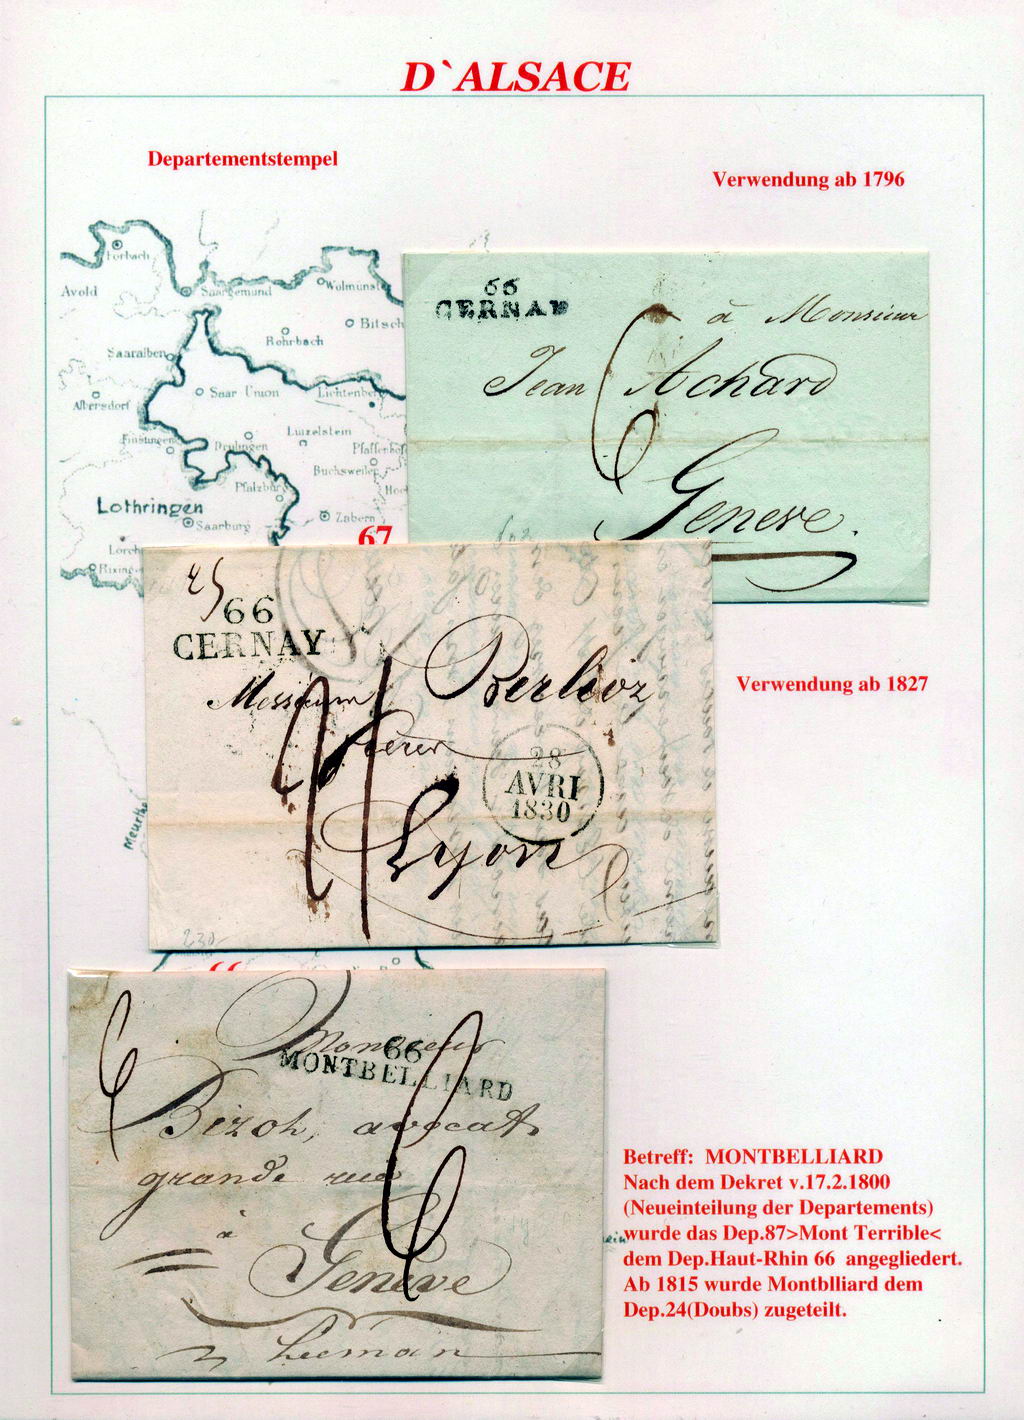 D`ALSACE
Departementstempel
Verwendung ab 1796
Forbach
Avold
Saargemünd
Wolmunst
Bitsch
Rohrbach
Saaralben
Saar Union
Lichtenberg
Albersdorf
Finstingen
Drulingen
Lützelstein
Pfaffenhof
Buchsweiler
Pfalzburg
Hoc
Lothringen
Saarburg
Zabern
Lorch
Rixing
67
66
CERNAY
à Monsieur
Jean Achard
6
Geneve.
66
CERNAY
Messieurs Berlioz
freres
28
AVRI
1830
Lyon
230
Verwendung ab 1827
Meurthe
66
Monsieur
66
MONTBELLIARD
6
Bizot, avocat
grande rue
à
Geneve
Leeman
Betreff: MONTBELLIARD
Nach dem Dekret v.17.2.1800
(Neueinteilung der Departements)
ein wurde das Dep.87>Mont Terrible<
dem Dep.Haut-Rhin 66 angegliedert.
Ab 1815 wurde Montblliard dem
Dep.24(Doubs) zugeteilt.